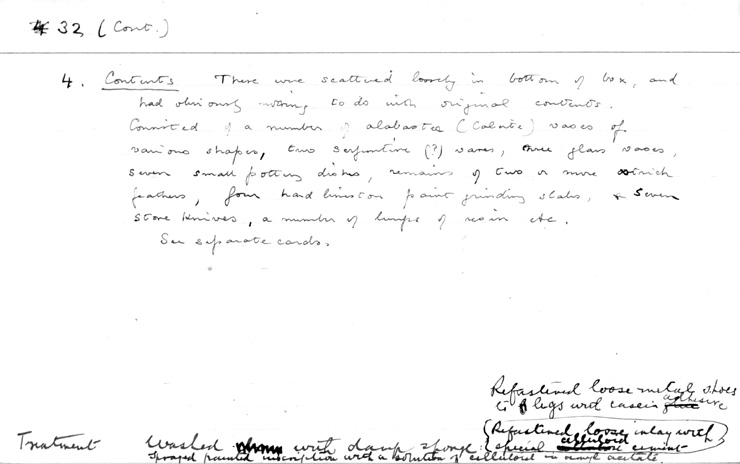 32 (Cont.)
4. Contents There were scattered loosely in bottom of box, and
had obviously nothing to do with original contents.
Consisted of a number of alabaster (Calcite) vases of
various shapes, two serpentine (?) vases, three glass vases,
seven small pottery dishes, remains of two or more ostrich
feathers, four hard limeston paint grinding slabs, & seven
stone knives, a number of lumps of resin etc.
See separate cards.
Refastened loose metal shoes
to legs with casein adhesive
(Refastened loose inlay with
special celluloid cement)
Treatment Washed with damp sponge
Sprayed painted inscription with a solution of celluloid in amyl acetate